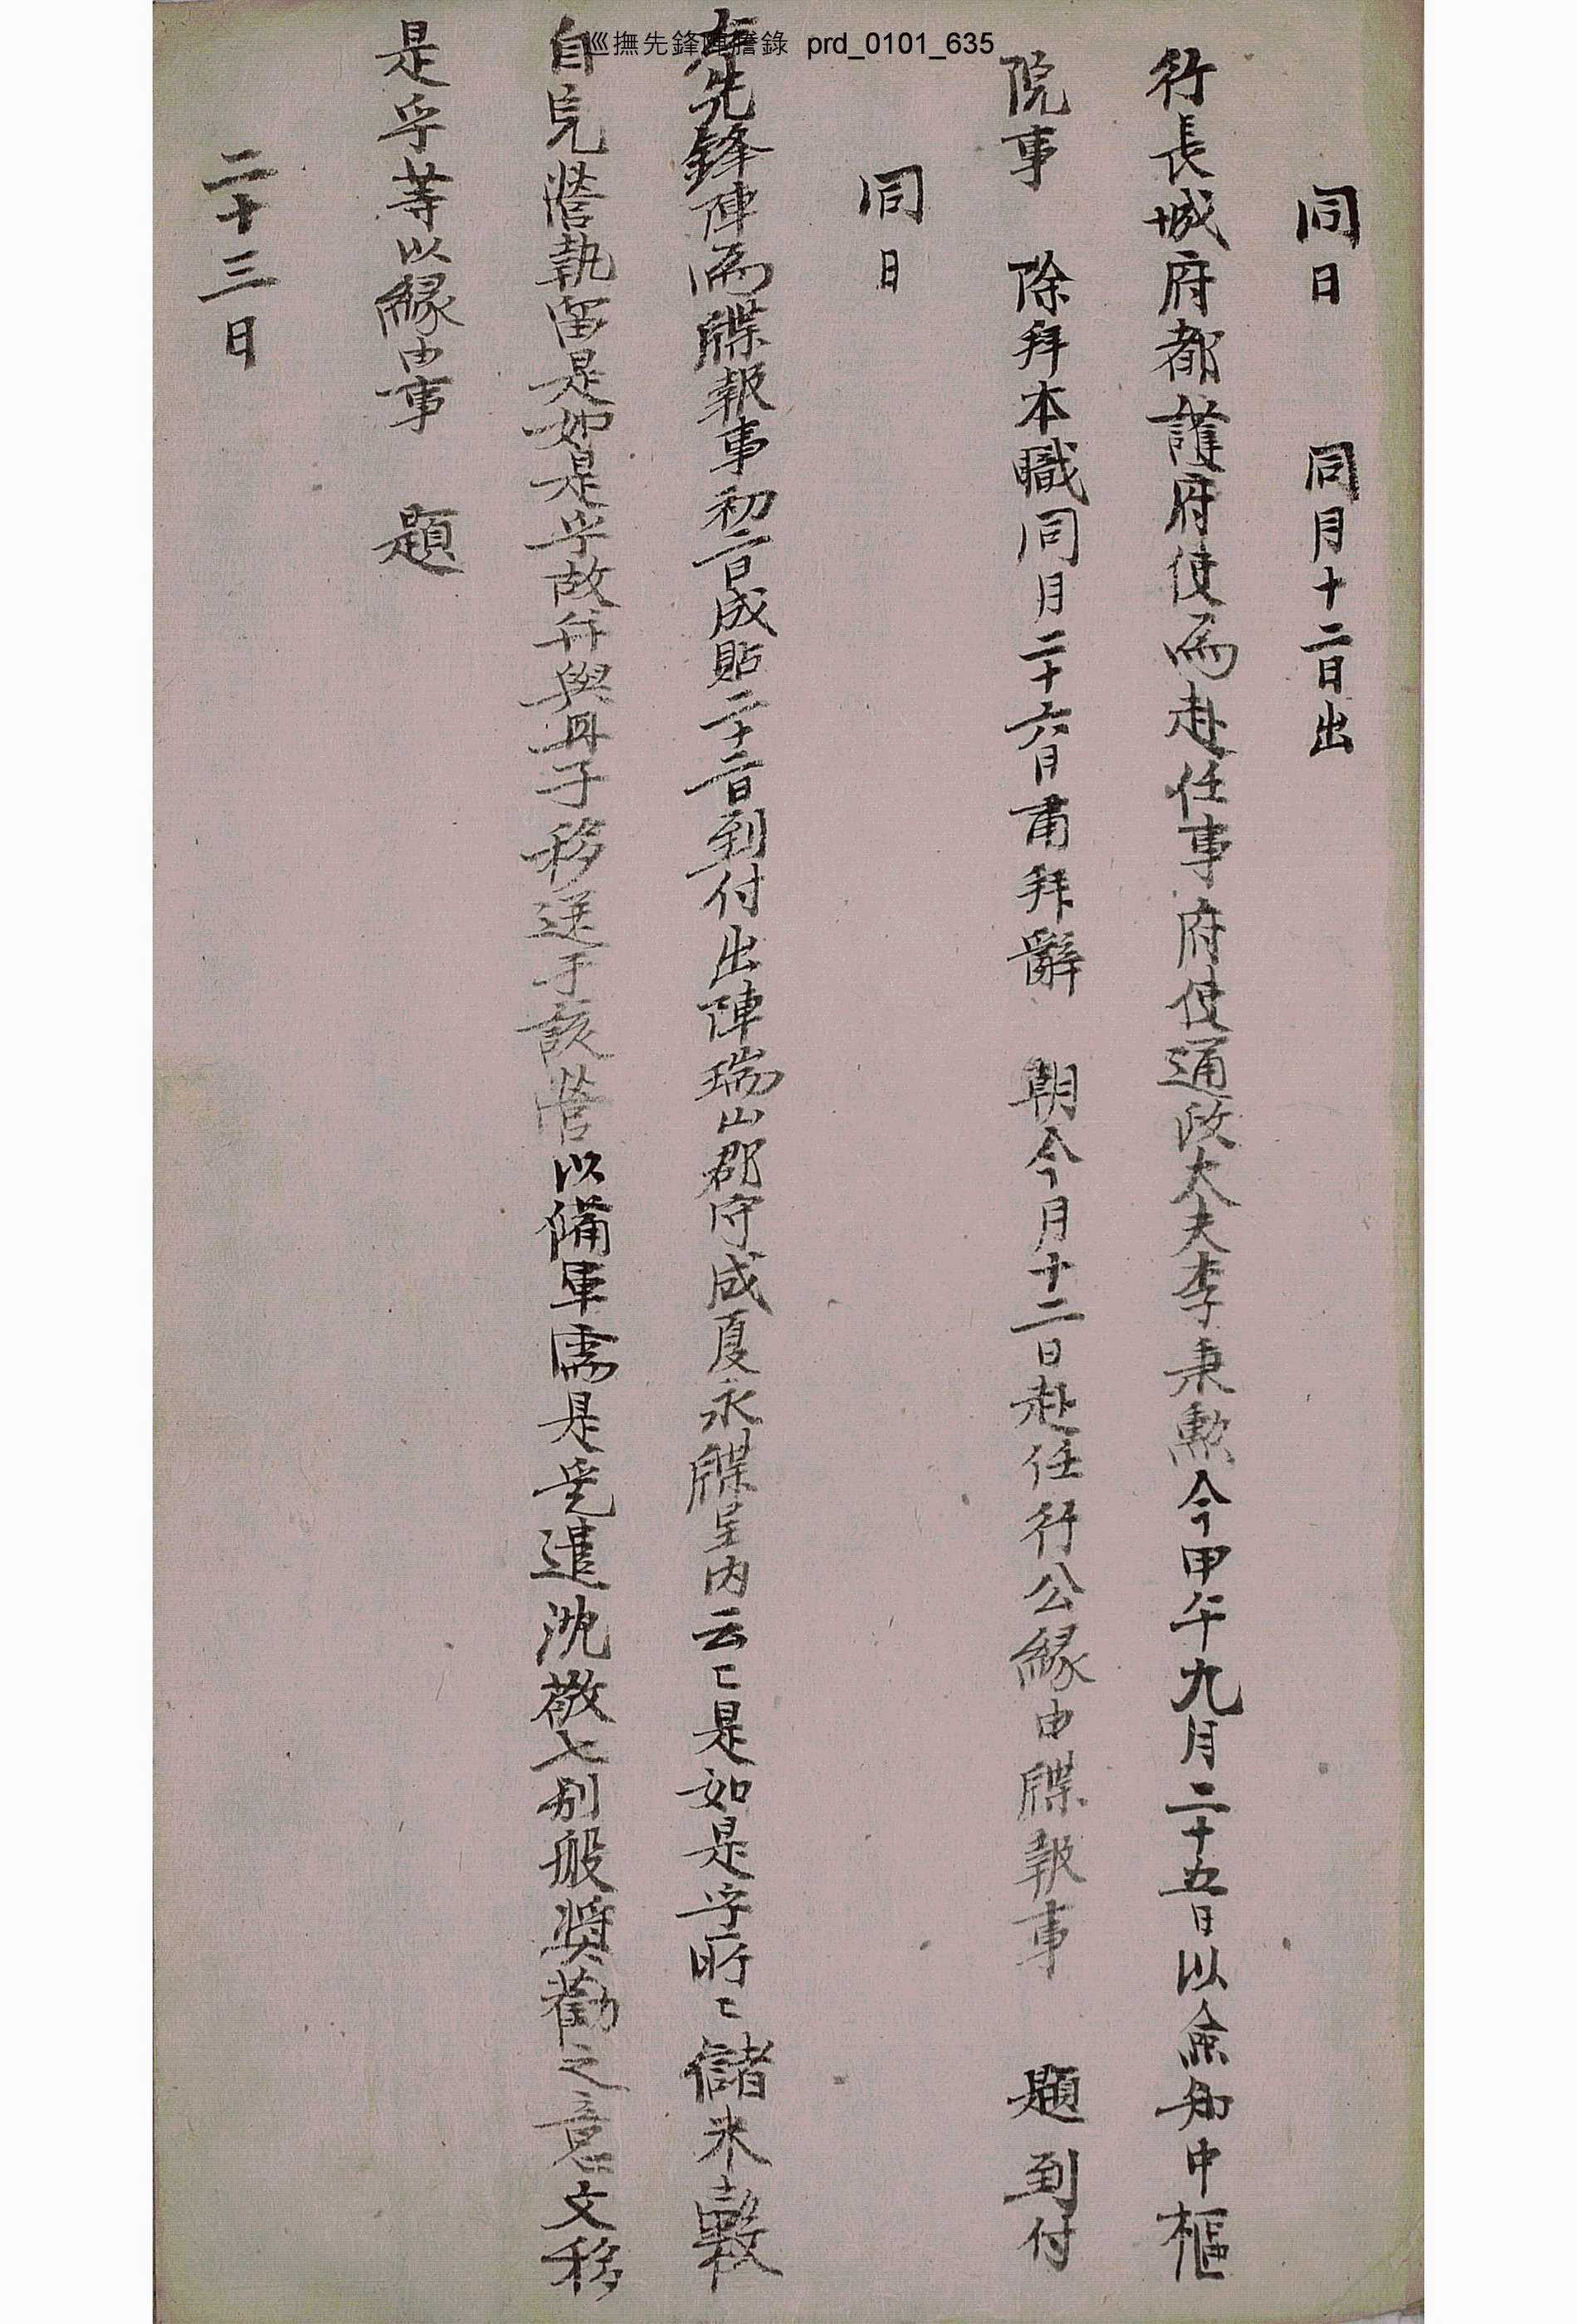 巡撫先鋒陣謄錄 prd_0101_635
同日 同月十二日出
行長城府都護府使爲赴任事府使通政大夫李秉勲今甲午九月二十五日以僉知中樞
院事 除拜本職同月二十六日肅拜辭 朝今月十二日赴任行公緣由牒報事 題到付
同日
右先鋒陣爲牒報事初二日成貼二十二日到付出陣瑞山郡守成夏永牒呈內云〻是如是乎所〻儲米數
自完營執留是如是乎故幷與冊子移送于該營以備軍需是乎遣沈敬七別般奬勸之意文移
是乎等以緣由事 題
二十三日